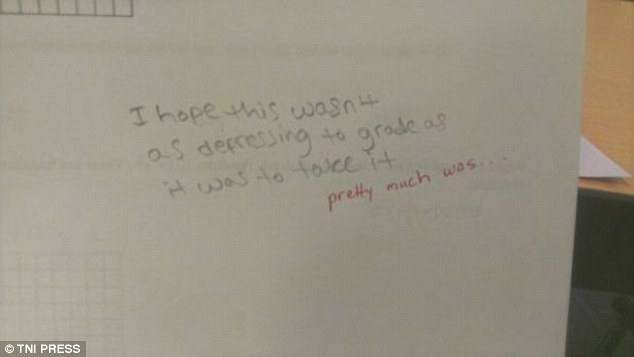 I hope this wasnt
as depressing to grade as
it was to take it
pretty much was...
© TNI PRESS